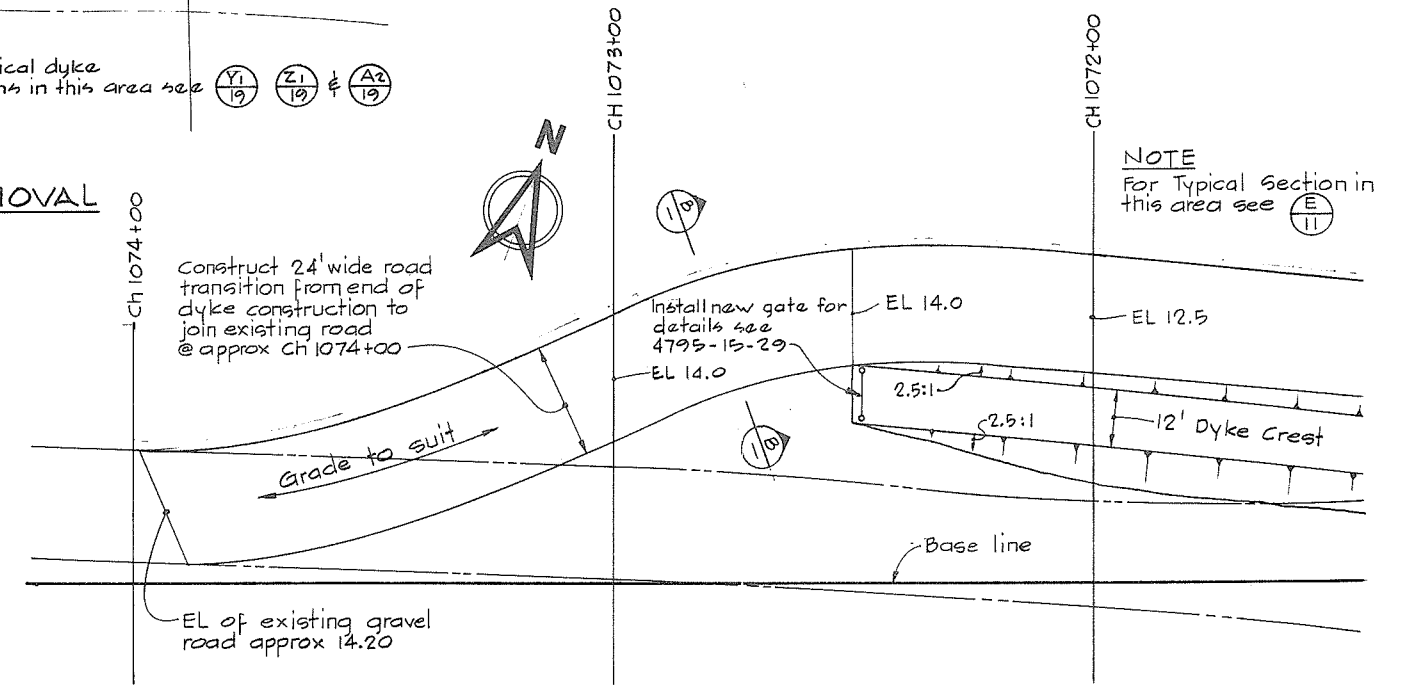 ical dyke
ns in this area see Y1/19 Z1/19 & A2/19
OVAL
Ch 1074+00
CH 1073+00
CH 1072+00
N
NOTE
For Typical Section in
this area see E/11
Construct 24' wide road
transition from end of
dyke construction to
join existing road
@ approx Ch 1074+00
B/1
Install new gate for
details see
4795-15-29
EL 14.0
EL 14.0
EL 12.5
2.5:1
2.5:1
12' Dyke Crest
Grade to suit
B/1
Base line
EL of existing gravel
road approx 14.20